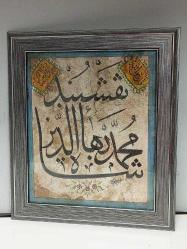 شاه
محمد بهاء الدين
نقشبند